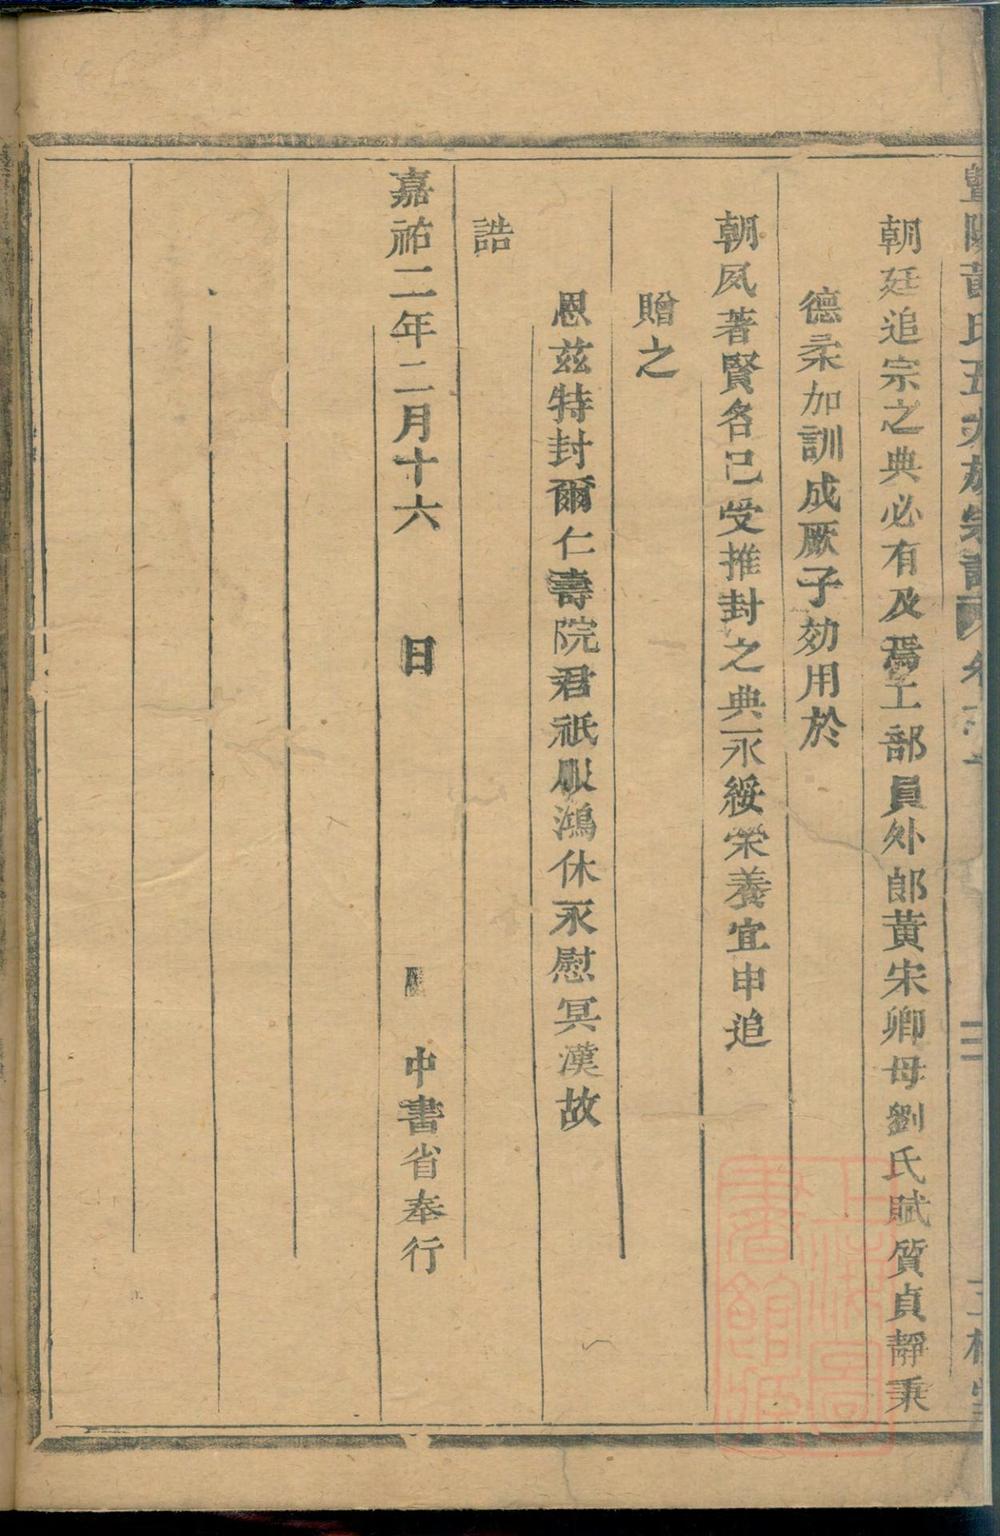 暨陽黃氏五大族宗譜
朝廷追宗之典必有及焉工部員外郎黃宋卿母劉氏賦質貞靜秉
德柔加訓成厥子効用於
朝夙著賢名已受推封之典永綏荣養宜申追
贈之
恩茲特封爾仁壽院君祇服鴻休永慰冥漠故
誥
嘉祐二年二月十六 日 中書省奉行
上海圖書館藏